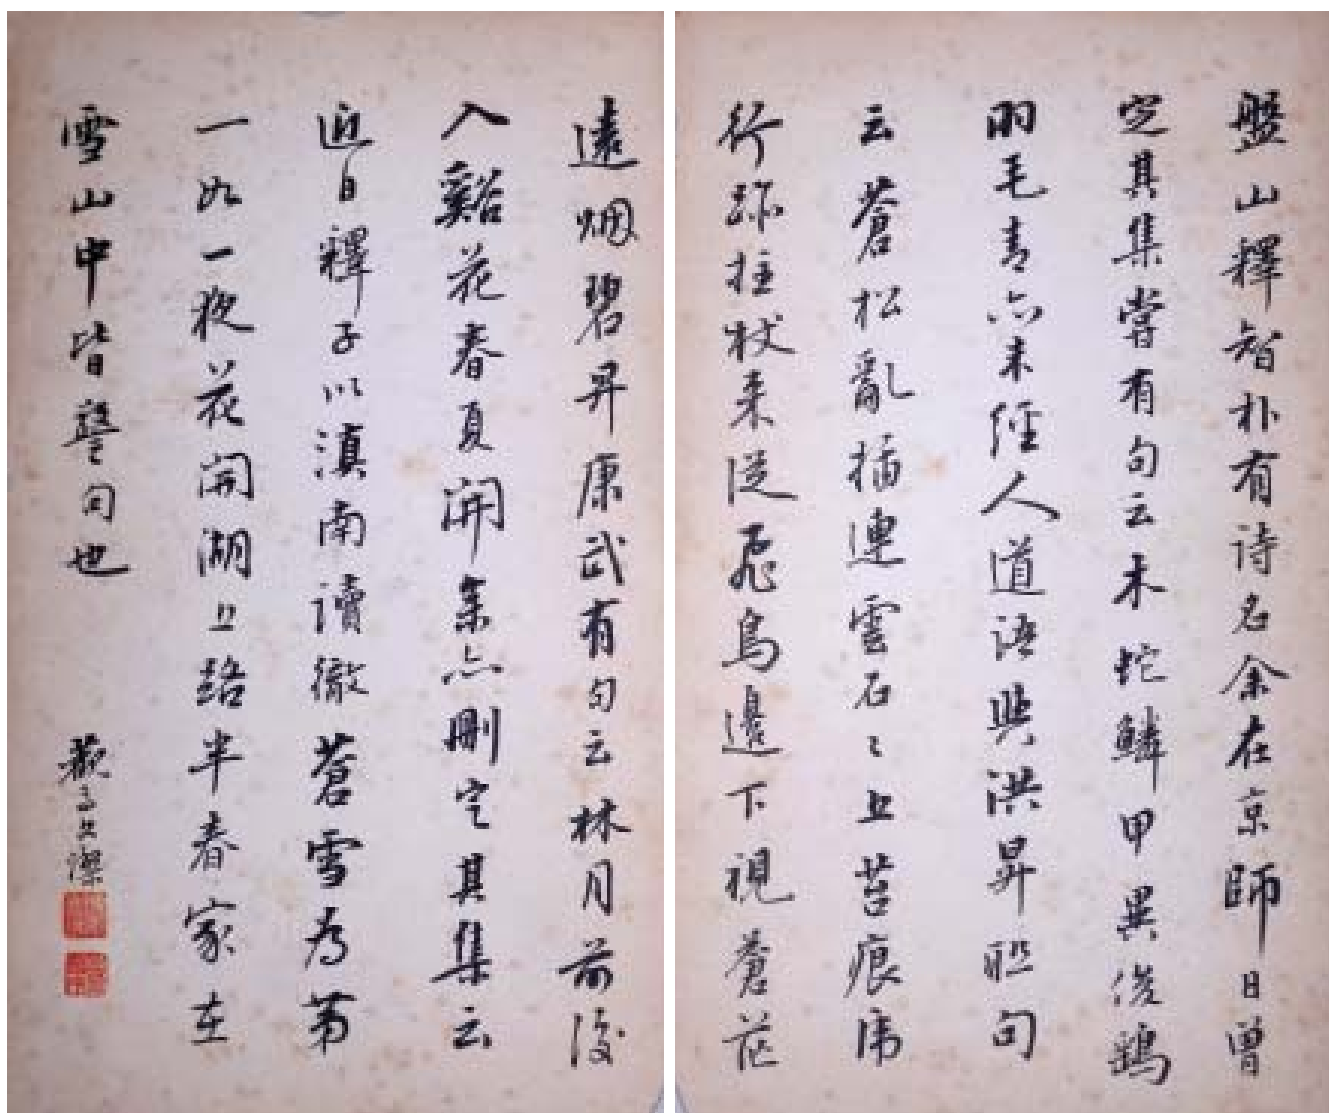 盤山釋智朴有诗名余在京師日曾
定其集嘗有句云木蛇鱗甲異俊鶻
羽毛青亦未經人道語與洪昇聯句
云蒼松亂插連雲石〻上苔痕虎
行跡拄杖来從飛鳥邊下視蒼茫
遠烟碧昇康武有句云林月前後
入谿花春夏開余亦刪定其集云
近日釋子以滇南讀徹蒼雪為第
一如一夜花開湖上路半春家在
雪山中皆警句也